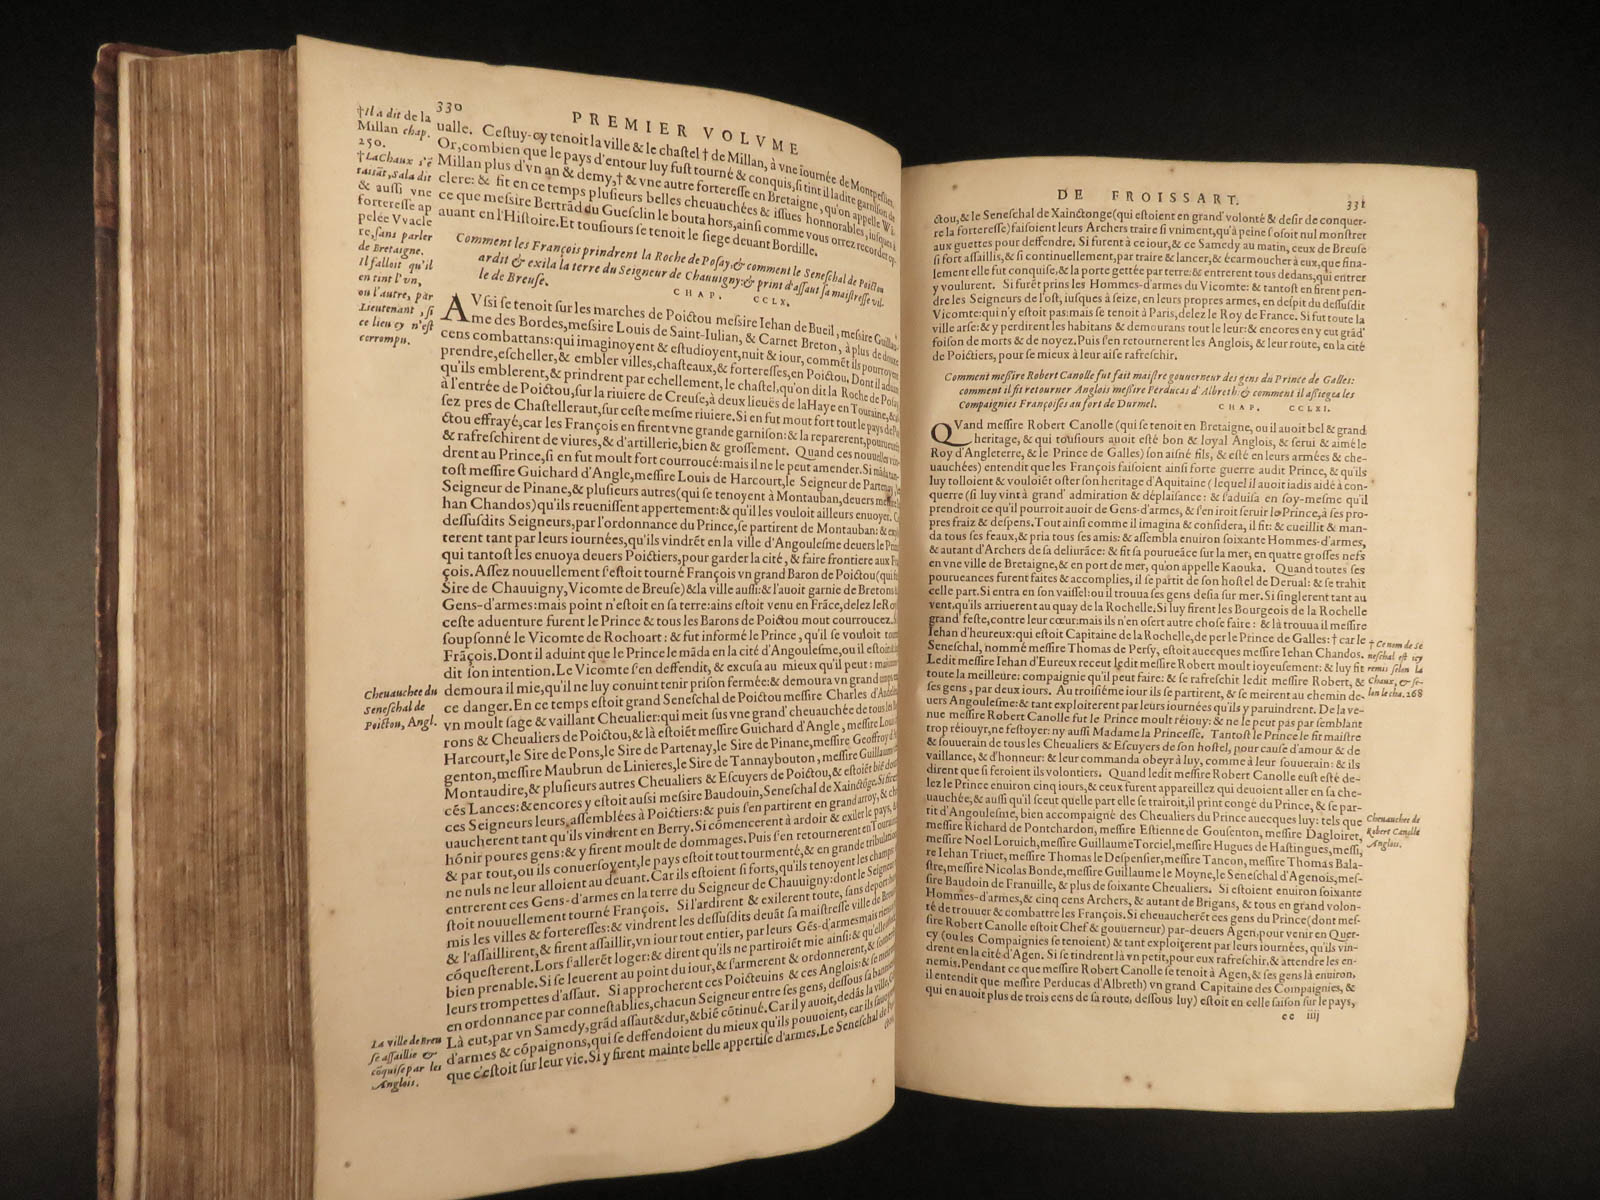 330
PREMIER VOLVME
†Il a dit de la
Millan chap.
250.
†La Chaux s'ẽ
taisãt, sa la dit
& aussi vne
forteresse ap
pelée Vvacle
re, sans parler
de Bretaigne.
Il falloit qu'il
en tint l'vn,
ou l'autre, par
Lieutenant, si
ce lieu cy n'est
corrompu.
ualle. Cestuy-cy tenoit la ville & le chastel † de Millan, à vne iournée de Montpessier.
Or, combien que le pays d'entour luy fust tourné & conquis, si tint il ladite garnison de
Millan plus d'vn an & demy,† & vne autre forteresse en Bretaigne, qu'on appelle Wi-
clere: & fit en ce temps plusieurs belles cheuauchées & issues honnorables, iusques à
ce que messire Bertrãd du Guesclin le bouta hors, ainsi comme vous orrez recorder cy-
auant en l'Histoire. Et tousiours se tenoit le siege deuant Bordille.
Comment les François prindrent la Roche de Posay, & comment le Seneschal de Poictou
ardit & exila la terre du Seigneur de Chauuigny: & print d'assaut sa maistresse vil-
le de Breuse. CHAP. CCLX.
AVssi se tenoit sur les marches de Poictou messire Iehan de Bueil, messire Guillau-
me des Bordes, messire Louis de Saint-Iulian, & Carnet Breton, à plus de douze
cens combattans: qui imaginoyent & estudioyent, nuit & iour, commẽt ils pourroyent
prendre, escheller, & embler villes, chasteaux, & forteresses, en Poictou. Dont il aduint
qu'ils emblerent, & prindrent par echellement, le chastel, qu'on dit la Roche de Posay,
à l'entrée de Poictou, sur la riuiere de Creuse, à deux lieuës de la Haye en Touraine, &
sez pres de Chastelleraut, sur ceste mesme riuiere. Si en fut mout fort tout le pays de Poi
ctou effrayé, car les François en firent vne grande garnison: & la reparerent, pourueurẽt
& rafreschirent de viures, & d'artillerie, bien & grossement. Quand ces nouuelles vin-
drent au Prince, si en fut moult fort courroucé: mais il ne le peut amender. Si mãda tan-
tost messire Guichard d'Angle, messire Louis de Harcourt, le Seigneur de Partenay, le
Seigneur de Pinane, & plusieurs autres (qui se tenoyent à Montauban, deuers messire
han Chandos) qu'ils reuenissent appertement: & qu'il les vouloit ailleurs enuoyer.
dessusdits Seigneurs, par l'ordonnance du Prince, se partirent de Montauban: &
terent tant par leurs iournées, qu'ils vindrẽt en la ville d'Angoulesme deuers le Prin
qui tantost les enuoya deuers Poictiers, pour garder la cité, & faire frontiere aux
çois. Assez nouuellement s'estoit tourné François vn grand Baron de Poictou (qui
Sire de Chauuigny, Vicomte de Breuse) & la ville aussi: & l'auoit garnie de Bretons
Gens-d'armes: mais point n'estoit en sa terre: ains estoit venu en Frãce, delez le Roy
ceste aduenture furent le Prince & tous les Barons de Poictou mout courroucez.
soupsonné le Vicomte de Rochoart: & fut informé le Prince, qu'il se vouloit tour
Frãçois. Dont il aduint que le Prince le mãda en la cité d'Angoulesme, ou il estoit
dit son intention. Le Vicomte s'en deffendit, & excusa au mieux qu'il peut: mais
demoura il mie, qu'il ne luy conuint tenir prison fermée: & demoura vn grand temps en
ce danger. En ce temps estoit grand Seneschal de Poictou messire Charles d'Andelée
vn moult sage & vaillant Cheualier: qui meit sus vne grand' cheuauchée de tous les
rons & Cheualiers de Poictou, & là estoiẽt messire Guichard d'Angle, messire Louis
Harcourt, le Sire de Pons, le Sire de Partenay, le Sire de Pinane, messire Geoffroy d'
genton, messire Maubrun de Linieres, le Sire de Tannaybouton, messire Guillaume
Montaudire, & plusieurs autres Cheualiers & Escuyers de Poictou, & estoiẽt biẽ douze
cẽs Lances: & encores y estoit aussi messire Baudouin, Seneschal de Xainctõge. Si firẽt
ces Seigneurs leurs assemblées à Poictiers: & puis s'en partirent en grand arroy, & che
uaucherent tant qu'ils vindrent en Berry. Si cõmencerent à ardoir & exiler le pays,
hõnir poures gens: & y firent moult de dommages. Puis s'en retournerent en Touraine
& par tout, ou ils conuersoyent, le pays estoit tout tourmenté, & en grande tribulation
ne nuls ne leur alloient au deuant. Car ils estoient si forts, qu'ils tenoyent les champs.
entrerent ces Gens-d'armes en la terre du Seigneur de Chauuigny: dont le Seigneur
stoit nouuellement tourné François. Si l'ardirent & exilerent toute, sans deport: hor
mis les villes & forteresses: & vindrent les dessusdits deuãt sa maistresse ville de Breuse
& l'assaillirent, & firent assaillir, vn iour tout entier, par leurs Gẽs-d'armes mais rien n'y
cõquesterent. Lors s'allerẽt loger: & dirent qu'ils ne partiroiẽt mie ainsi: & qu'elle estoit
bien prenable. Si se leuerent au point du iour, & s'armerent & ordonnerent, & sonnerent
leurs trompettes d'assaut. Si approcherent ces Poicteuins & ces Anglois: & se meirent
en ordonnance par connestablies, chacun Seigneur entre ses gens, dessous sa banniere.
Là eut, par vn Samedy, grãd assaut & dur, & biẽ cõtinué. Car il y auoit, dedãs la ville, Gẽs
d'armes & cõpaignons, qui se deffendoient du mieux qu'ils pouuoient, car ils sauoient
que c'estoit sur leur vie. Si y firent mainte belle appertise d'armes. Le Seneschal de Poi-
Cheuauchée du
Seneschal de
Poictou, Angl.
La ville de Breu
se assaillie &
cõquise par les
Anglois.
DE FROISSART.
331
ctou, & le Seneschal de Xainctonge (qui estoient en grand' volonté & desir de conquer-
re la forteresse) faisoient leurs Archers traire si vniment, qu'à peine s'osoit nul monstrer
aux guettes pour deffendre. Si furent à ce iour, & ce Samedy au matin, ceux de Breuse
si fort assaillis, & si continuellement, par traire & lancer, & écarmoucher à eux, que fina-
lement elle fut conquise, & la porte gettée par terre: & entrerent tous dedans, qui entrer
y voulurent. Si furẽt prins les Hommes-d'armes du Vicomte: & tantost en firent pen-
dre les Seigneurs de l'ost, iusques à seize, en leurs propres armes, en despit du dessusdit
Vicomte: qui n'y estoit pas: mais se tenoit à Paris, delez le Roy de France. Si fut toute la
ville arse: & y perdirent les habitans & demourans tout le leur: & encores en y eut grãd'
foison de morts & de noyez. Puis s'en retournerent les Anglois, & leur route, en la cité
de Poictiers, pour se mieux à leur aise rafreschir.
Comment messire Robert Canolle fut fait maistre gouuerneur des gens du Prince de Galles:
comment il fit retourner Anglois messire Perducas d'Albreth: & comment il assiegea les
Compaignies Françoises au fort de Durmel. CHAP. CCLXI.
QVand messire Robert Canolle (qui se tenoit en Bretaigne, ou il auoit bel & grand
heritage, & qui tousiours auoit esté bon & loyal Anglois, & serui & aimé le
Roy d'Angleterre, & le Prince de Galles) son aisné fils, & esté en leurs armées & che-
uauchées) entendit que les François faisoient ainsi forte guerre audit Prince, & qu'ils
luy tolloient & vouloiẽt oster son heritage d'Aquitaine (lequel il auoit iadis aidé à con-
querre (si luy vint à grand' admiration & déplaisance: & s'aduisa en soy-mesme qu'il
prendroit ce qu'il pourroit auoir de Gens-d'armes, & s'en iroit seruir le Prince, à ses pro-
pres fraiz & despens. Tout ainsi comme il imagina & considera, il fit: & cueillit & man-
da tous ses feaux, & pria tous ses amis: & assembla enuiron soixante Hommes-d'armes,
& autant d'Archers de sa deliurãce: & fit sa pourueãce sur la mer, en quatre grosses nefs
en vne ville de Bretaigne, & en port de mer, qu'on appelle Kaouka. Quand toutes ses
pourueances furent faites & accomplies, il se partit de son hostel de Derual: & se trahit
celle part. Si entra en son vaissel: ou il trouua ses gens desia sur mer. Si singlerent tant au
vent, qu'ils arriuerent au quay de la Rochelle. Si luy firent les Bourgeois de la Rochelle
grand' feste, contre leur cœur: mais ils n'en osert autre chose faire: & là trouua il messire
Iehan d'heureux: qui estoit Capitaine de la Rochelle, de per le Prince de Galles: † car le
Seneschal, nommé messire Thomas de Persy, estoit auecques messire Iehan Chandos.
Ledit messire Iehan d'Eureux receut ledit messire Robert moult ioyeusement: & luy fit
toute la meilleure: compaignie qu'il peut faire: & se rafreschit ledit messire Robert, &
ses gens, par deux iours. Au troisiéme iour ils se partirent, & se meirent au chemin de-
uers Angoulesme: & tant exploiterent par leurs iournées qu'ils y paruindrent. De la ve-
nue messire Robert Canolle fut le Prince moult réiouy: & ne le peut pas par semblant
trop réiouyr, ne festoyer: ny aussi Madame la Princesse. Tantost le Prince le fit maistre
& souuerain de tous les Cheualiers & Escuyers de son hostel, pour cause d'amour & de
vaillance, & d'honneur: & leur commanda obeyr à luy, comme à leur souuerain: & ils
dirent que si feroient ils volontiers. Quand ledit messire Robert Canolle eust esté de-
lez le Prince enuiron cinq iours, & ceux furent appareillez qui deuoient aller en sa che-
uauchée, & aussi qu'il sceut quelle part elle se trairoit, il print congé du Prince, & se par-
tit d'Angoulesme, bien accompaigné des Cheualiers du Prince auecques luy: tels que
messire Richard de Pontchardon, messire Estienne de Gousenton, messire Dagloiret,
messire Noel Loruich, messire Guillaume Torciel, messire Hugues de Hastingues, messi,
re Iehan Triuet, messire Thomas le Despensier, messire Tancon, messire Thomas Bala-
stre, messire Nicolas Bonde, messire Guillaume le Moyne, le Seneschal d'Agenois, mes-
sire Baudoin de Franuille, & plus de soixante Cheualiers. Si estoient enuiron soixante
Hommes-d'armes, & cinq cens Archers, & autant de Brigans, & tous en grand volon-
té de trouuer & combattre les François. Si cheuaucherẽt ces gens du Prince (dont mes-
sire Robert Canolle estoit Chef & gouuerneur) par-deuers Agen, pour venir en Quer-
cy (ou les Compaignies se tenoient) & tant exploiterent par leurs iournées, qu'ils vin-
drent en la cité d'Agen. Si se tindrent là vn petit, pour eux rafreschir, & attendre les en-
nemis. Pendant ce que messire Robert Canolle se tenoit à Agen, & ses gens là enuiron,
il entendit que messire Perducas d'Albreth) vn grand Capitaine des Compaignies, &
qui en auoit plus de trois cens de sa route, dessous luy) estoit en celle saison sur le pays,
cc iiij
† Ce nom de Se
neschal est icy
remis selon la
Chaux, & se-
lon le cha. 268
Cheuauchée de
Robert Canolle
Anglois.